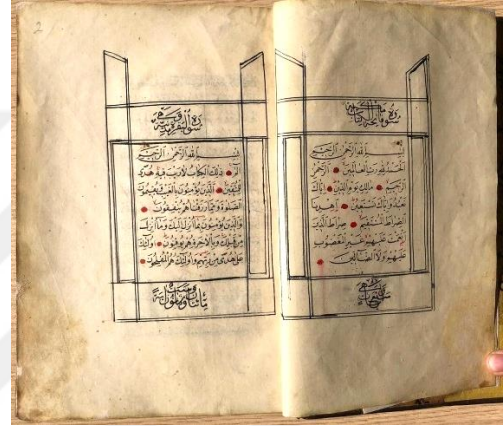 سورة فاتحة الكتاب
بِسْمِ اللهِ الرَّحْمٰنِ الرَّحِيمِ
اَلْحَمْدُ لِلّٰهِ رَبِّ الْعَالَمِينَ الرَّحْمٰنِ
الرَّحِيمِ مَالِكِ يَوْمِ الدِّينِ اِيَّاكَ
نَعْبُدُ وَاِيَّاكَ نَسْتَعِينُ اِهْدِنَا
الصِّرَاطَ الْمُسْتَقِيمَ صِرَاطَ الَّذِينَ
اَنْعَمْتَ عَلَيْهِمْ غَيْرِ الْمَغْضُوبِ
عَلَيْهِمْ وَلَا الضَّالِّينَ
2
سورة البقرة
بِسْمِ اللهِ الرَّحْمٰنِ الرَّحِيمِ
الم ذٰلِكَ الْكِتَابُ لَا رَيْبَ فِيهِ هُدًى
لِلْمُتَّقِينَ الَّذِينَ يُؤْمِنُونَ بِالْغَيْبِ وَيُقِيمُونَ
الصَّلٰوةَ وَمِمَّا رَزَقْنَاهُمْ يُنْفِقُونَ
وَالَّذِينَ يُؤْمِنُونَ بِمَا اُنْزِلَ اِلَيْكَ وَمَا اُنْزِلَ
مِنْ قَبْلِكَ وَبِالْاٰخِرَةِ هُمْ يُوقِنُونَ اُولٰئِكَ
عَلٰى هُدًى مِنْ رَبِّهِمْ وَاُولٰئِكَ هُمُ الْمُفْلِحُونَ